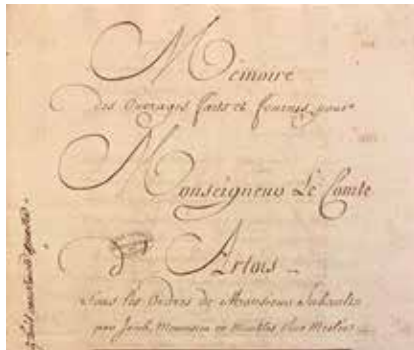 Mémoire
des Ouvrages faits et fournis pour
Monseigneur Le Comte
d'Artois
Sous les Ordres de Monsieur
par Jacob Menuisier en Meubles Rue Meslée